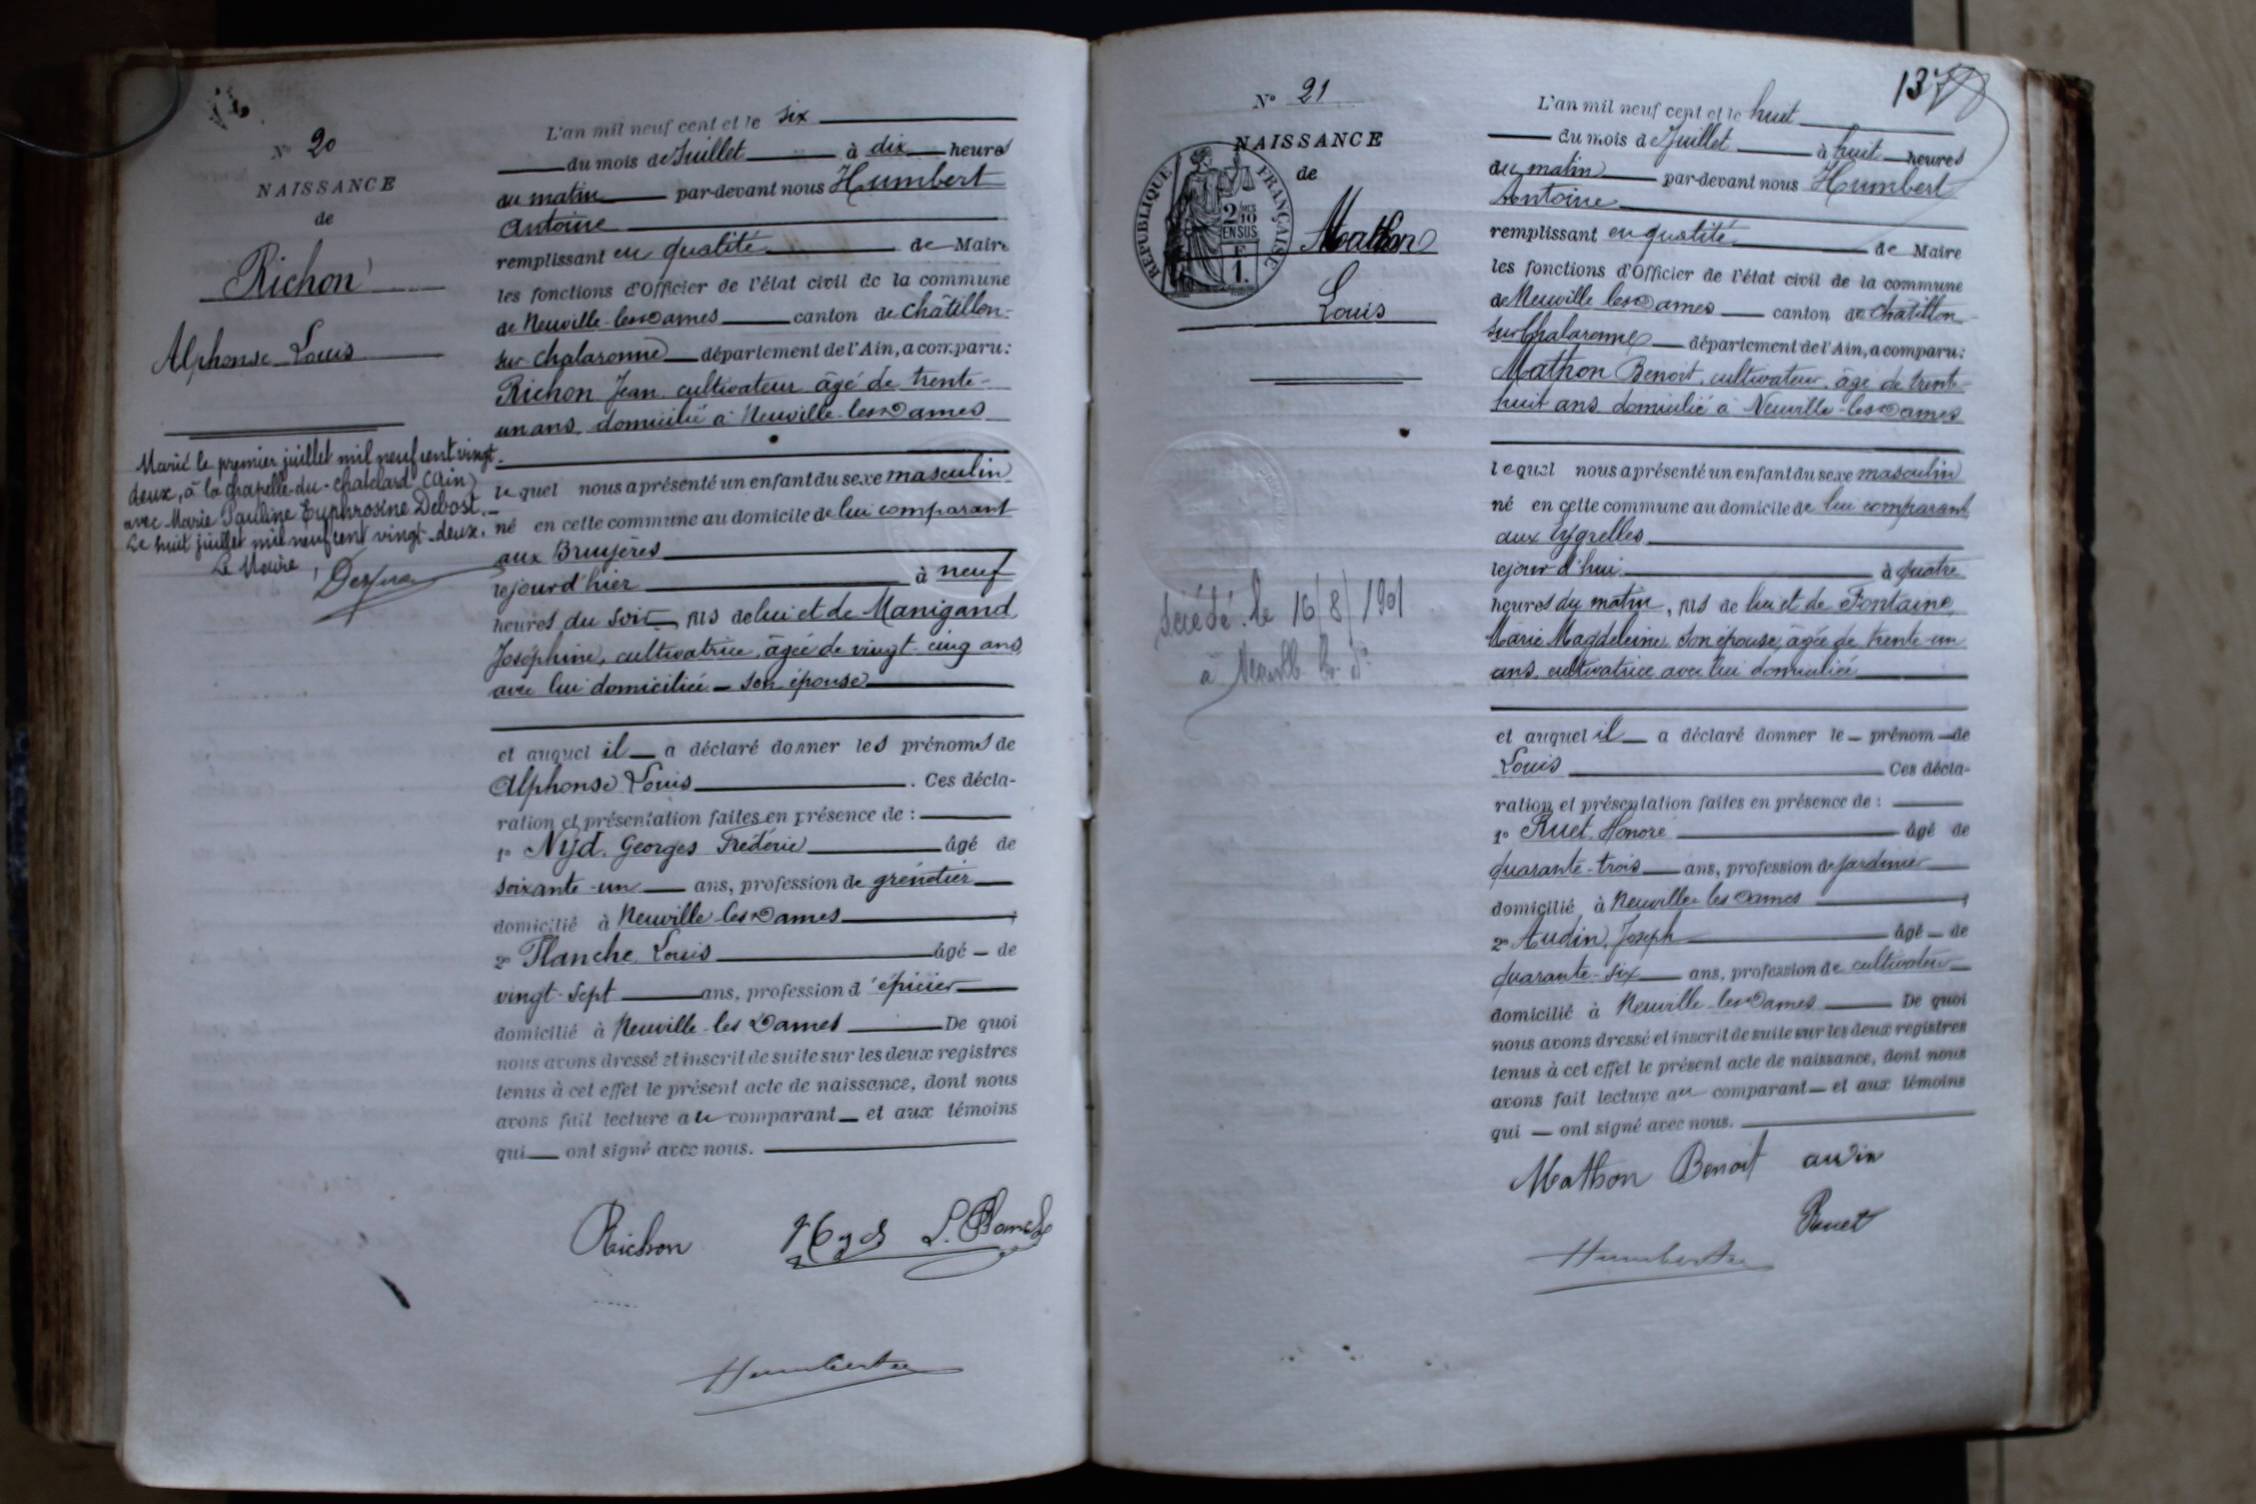 N° 20
NAISSANCE
de
Richon
Alphonse Louis
Marié le premier juillet mil neuf cent vingt-
deux, à la Chapelle-du-Chatelard (Ain)
avec Marie Pauline Euphrosine Debost.
Le huit juillet mil neuf cent vingt-deux.
Le Maire,
L'an mil neuf cent et le six
du mois de Juillet à dix heures
du matin par-devant nous Humbert
Antoine
remplissant en qualité de Maire
les fonctions d'Officier de l'état civil de la commune
de Neuville-les-Dames canton de Châtillon-
sur-Chalaronne département de l'Ain, a comparu:
Richon Jean cultivateur âgé de trente-
un ans, domicilié à Neuville-les-Dames
lequel nous a présenté un enfant du sexe masculin
né en cette commune au domicile de lui comparant
aux Bruyères
lejourd'hier à neuf
heures du soir, fils de lui et de Manigand
Joséphine, cultivatrice, âgée de vingt-cinq ans
avec lui domiciliée - son épouse
et auquel il a déclaré donner les prénoms de
Alphonse Louis. Ces décla-
ration et présentation faites en présence de :
1° Nyd. Georges Frédéric âgé de
soixante-un ans, profession de grénetier
domicilié à Neuville-les-Dames
2° Planche Louis âgé de
vingt-sept ans, profession d'épicier
domicilié à Neuville-les Dames De quoi
nous avons dressé et inscrit de suite sur les deux registres
tenus à cet effet le présent acte de naissance, dont nous
avons fait lecture au comparant et aux témoins
qui ont signé avec nous.
Richon L. Planche
Humbert
137
N° 21
NAISSANCE
de
RÉPUBLIQUE FRANÇAISE
2/10
EN SUS
F
1.
Mathon
Louis
décédé le 16/8/1901
à Neuville
L'an mil neuf cent et le huit
du mois de Juillet à huit heures
du matin par-devant nous Humbert
Antoine
remplissant en qualité de Maire
les fonctions d'Officier de l'état civil de la commune
de Neuville les Dames canton de Châtillon
sur Chalaronne département de l'Ain, a comparu:
Mathon Benoit, cultivateur, âgé de trente-
huit ans domicilié à Neuville-les-Dames
lequel nous a présenté un enfant du sexe masculin
né en cette commune au domicile de lui comparant
aux
lejour d'hui à quatre
heures du matin, fils de lui et de Fontaine
Marie Magdeleine, son épouse, âgée de trente-un
ans, cultivatrice avec lui domiciliée
et auquel il a déclaré donner le prénom de
Louis Ces décla-
ration et présentation faites en présence de :
1° Ruet Honoré âgé de
quarante-trois ans, profession de jardinier
domicilié à Neuville les Dames
2° Audin, Joseph âgé de
quarante-six ans, profession de cultivateur
domicilié à Neuville-les-Dames De quoi
nous avons dressé et inscrit de suite sur les deux registres
tenus à cet effet le présent acte de naissance, dont nous
avons fait lecture au comparant et aux témoins
qui ont signé avec nous.
Mathon Benoit audin
Ruet
Humbert